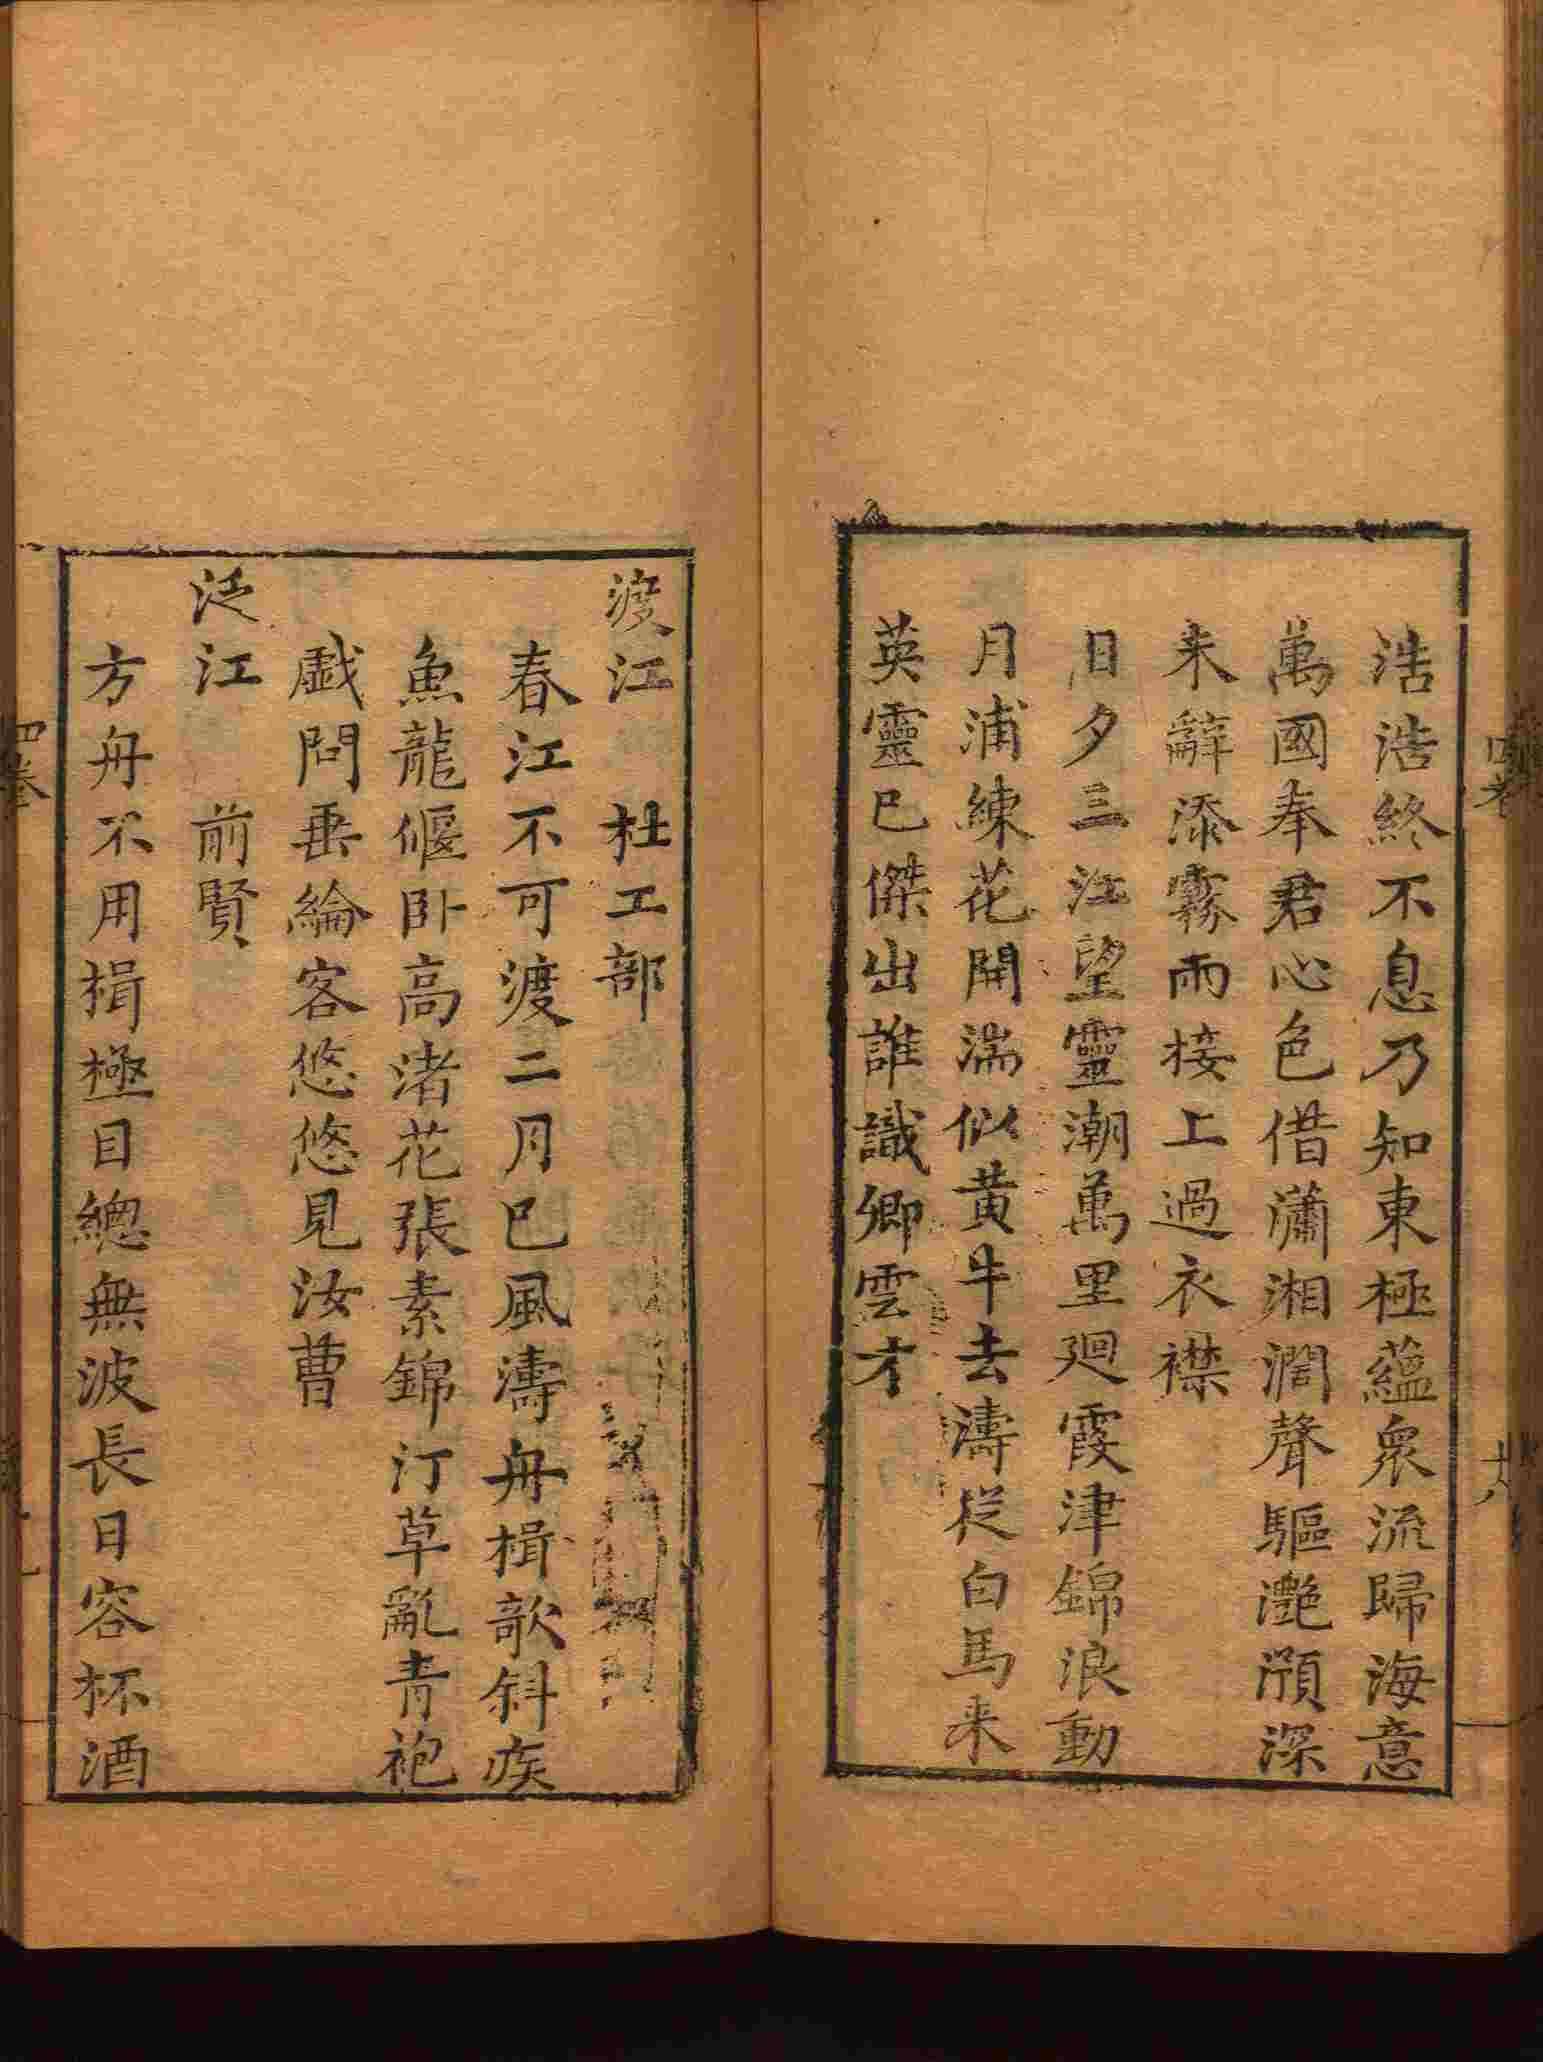 浩浩終不息乃知東極蘊衆流歸海意
萬國奉君心色借瀟湘濶聲驅灔澦深
来辭添霧雨接上過衣襟
日夕三江望靈潮萬里廻霞津錦浪動
月浦練花開湍似黄牛去濤從白馬来
英靈已傑出誰識卿雲才
四卷
十八
渡江　杜工部
春江不可渡二月已風濤舟楫欹斜疾
魚龍偃卧高渚花張素錦汀草亂青袍
戯問垂綸客悠悠見汝曹
泛江　前賢
方舟不用楫極目總無波長日容杯酒
四卷